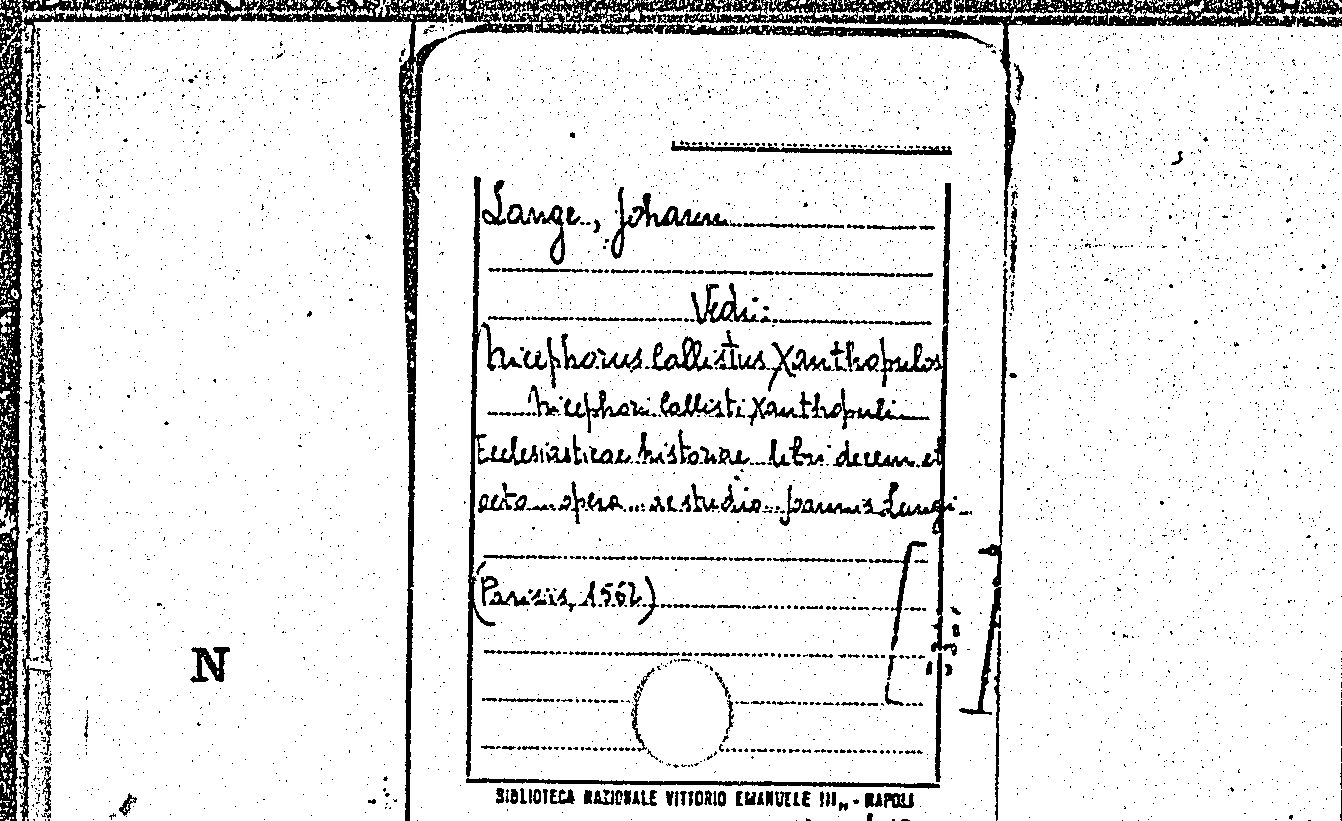 Lange, Johann
Vedi:
Nicephorus Callistus Xanthopulos
Nicephori Callisti Xanthopuli
Ecclesiasticae historiae libri decem et
octo opera ac studio Joannis Langi
(Parisiis, 1562)
N
BIBLIOTECA NAZIONALE VITTORIO EMANUELE III„ - NAPOLI